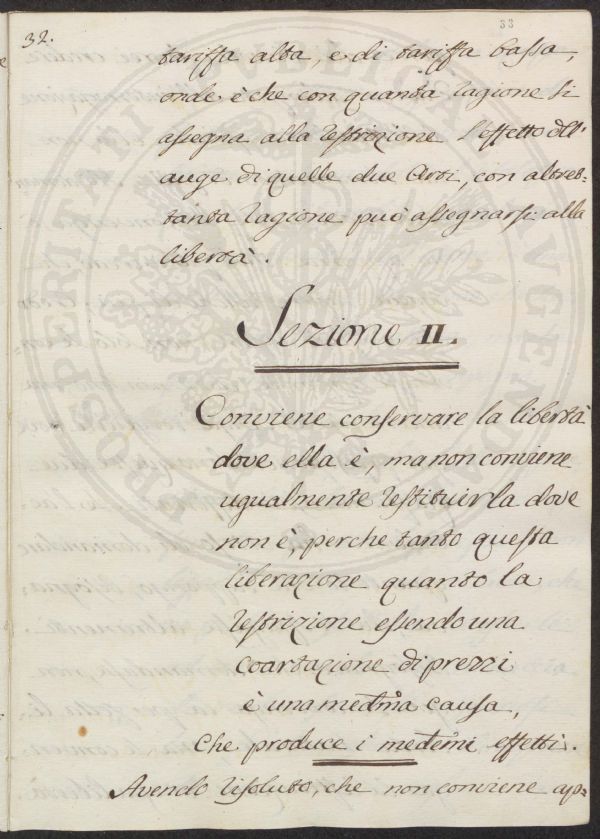 32.
33
tariffa alta, e di tariffa bassa,
onde è che con quanta ragione si
assegna alla restrizione l'effetto dell'
auge di quelle due Arti, con altret=
tanta ragione può assegnarsi alla
libertà.
Sezione II.
Conviene conservare la libertà
dove ella è, ma non conviene
ugualmente restituirla dove
non è, perche tanto questa
liberazione quanto la
restrizione essendo una
coartazione di prezzi
è una medma causa,
che produce i medemi effetti.
Avendo risoluto, che non conviene ap=
PROSPERITATI PUBLICAE AUGENDAE